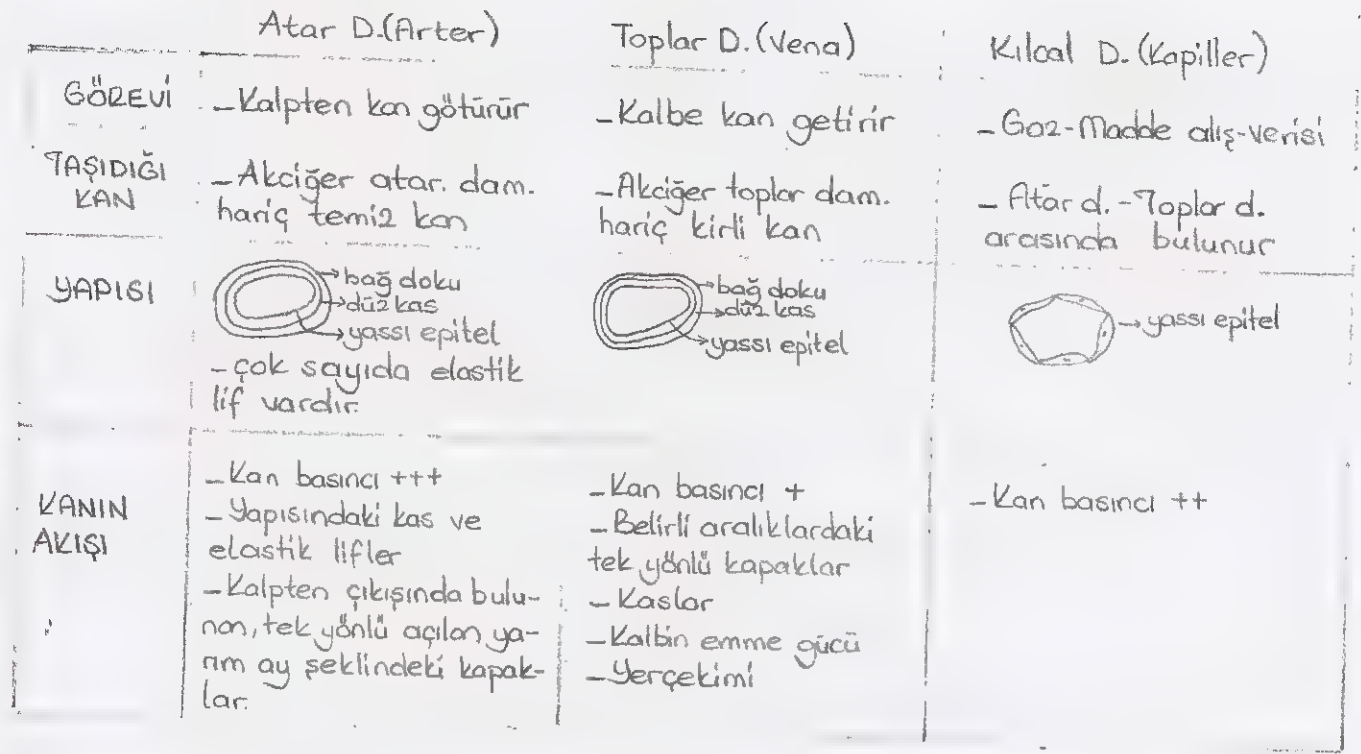 Atar D.(Arter)
Toplar D. (Vena)
Kılcal D. (Kapiller)
GÖREVİ
-Kalpten kan götürür
-Kalbe kan getirir
-Gaz-Madde alış-verisi
TAŞIDIĞI
KAN
-Akciğer atar. dam.
hariç temiz kan
-Akciğer toplar dam.
hariç kirli kan
- Atar d.-Toplar d.
arasında bulunur
YAPISI
bağ doku
düz kas
yassı epitel
- çok sayıda elastik
lif vardır.
bağ doku
düz kas
yassı epitel
yassı epitel
KANIN
AKIŞI
-Kan basıncı +++
-Yapısındaki kas ve
elastik lifler
-Kalpten çıkışında bulu-
nan, tek yönlü açılan ya-
rım ay şeklindeki kapak-
lar.
-Kan basıncı +
-Belirli aralıklardaki
tek yönlü kapaklar
-Kaslar
-Kalbin emme gücü
-Yerçekimi
-Kan basıncı ++